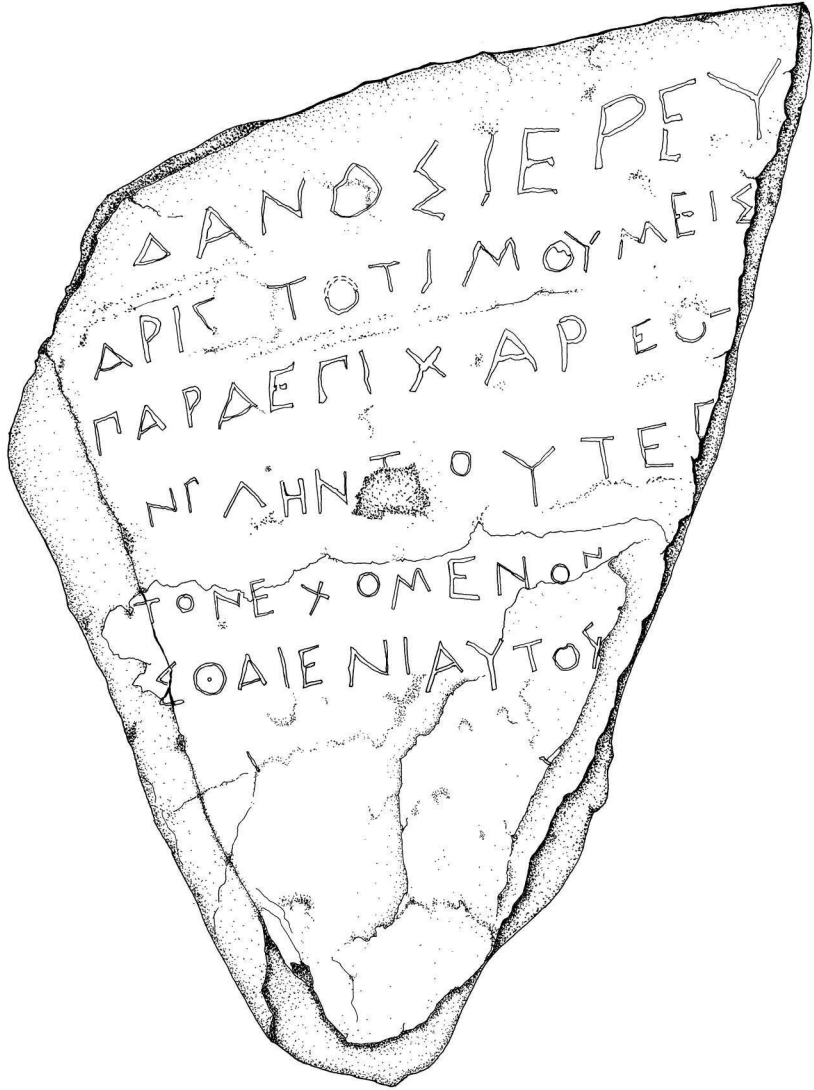 ΔΑΝΟΣΙΕΡΕΥ
ΑΡΙΣΤΟΤΙΜΟΥΜΕΙΣ
ΠΑΡΔΕΠΙΧΑΡΕΟ
ΝΓΛΗΝΤΟΥΤΕΓ
ΤΟΝΕΧΟΜΕΝΟΝ
ΣΘΔΙΕΝΙΑΥΤΟΥ